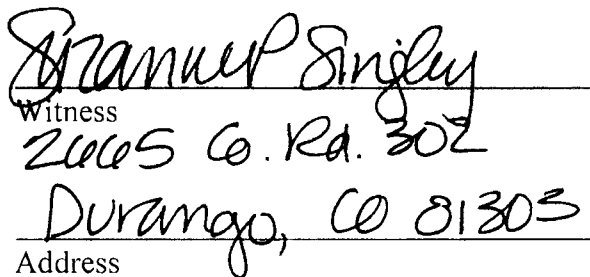 Suzanne P Singley
Witness
2665 Co. Rd. 302
Durango, CO 81303
Address